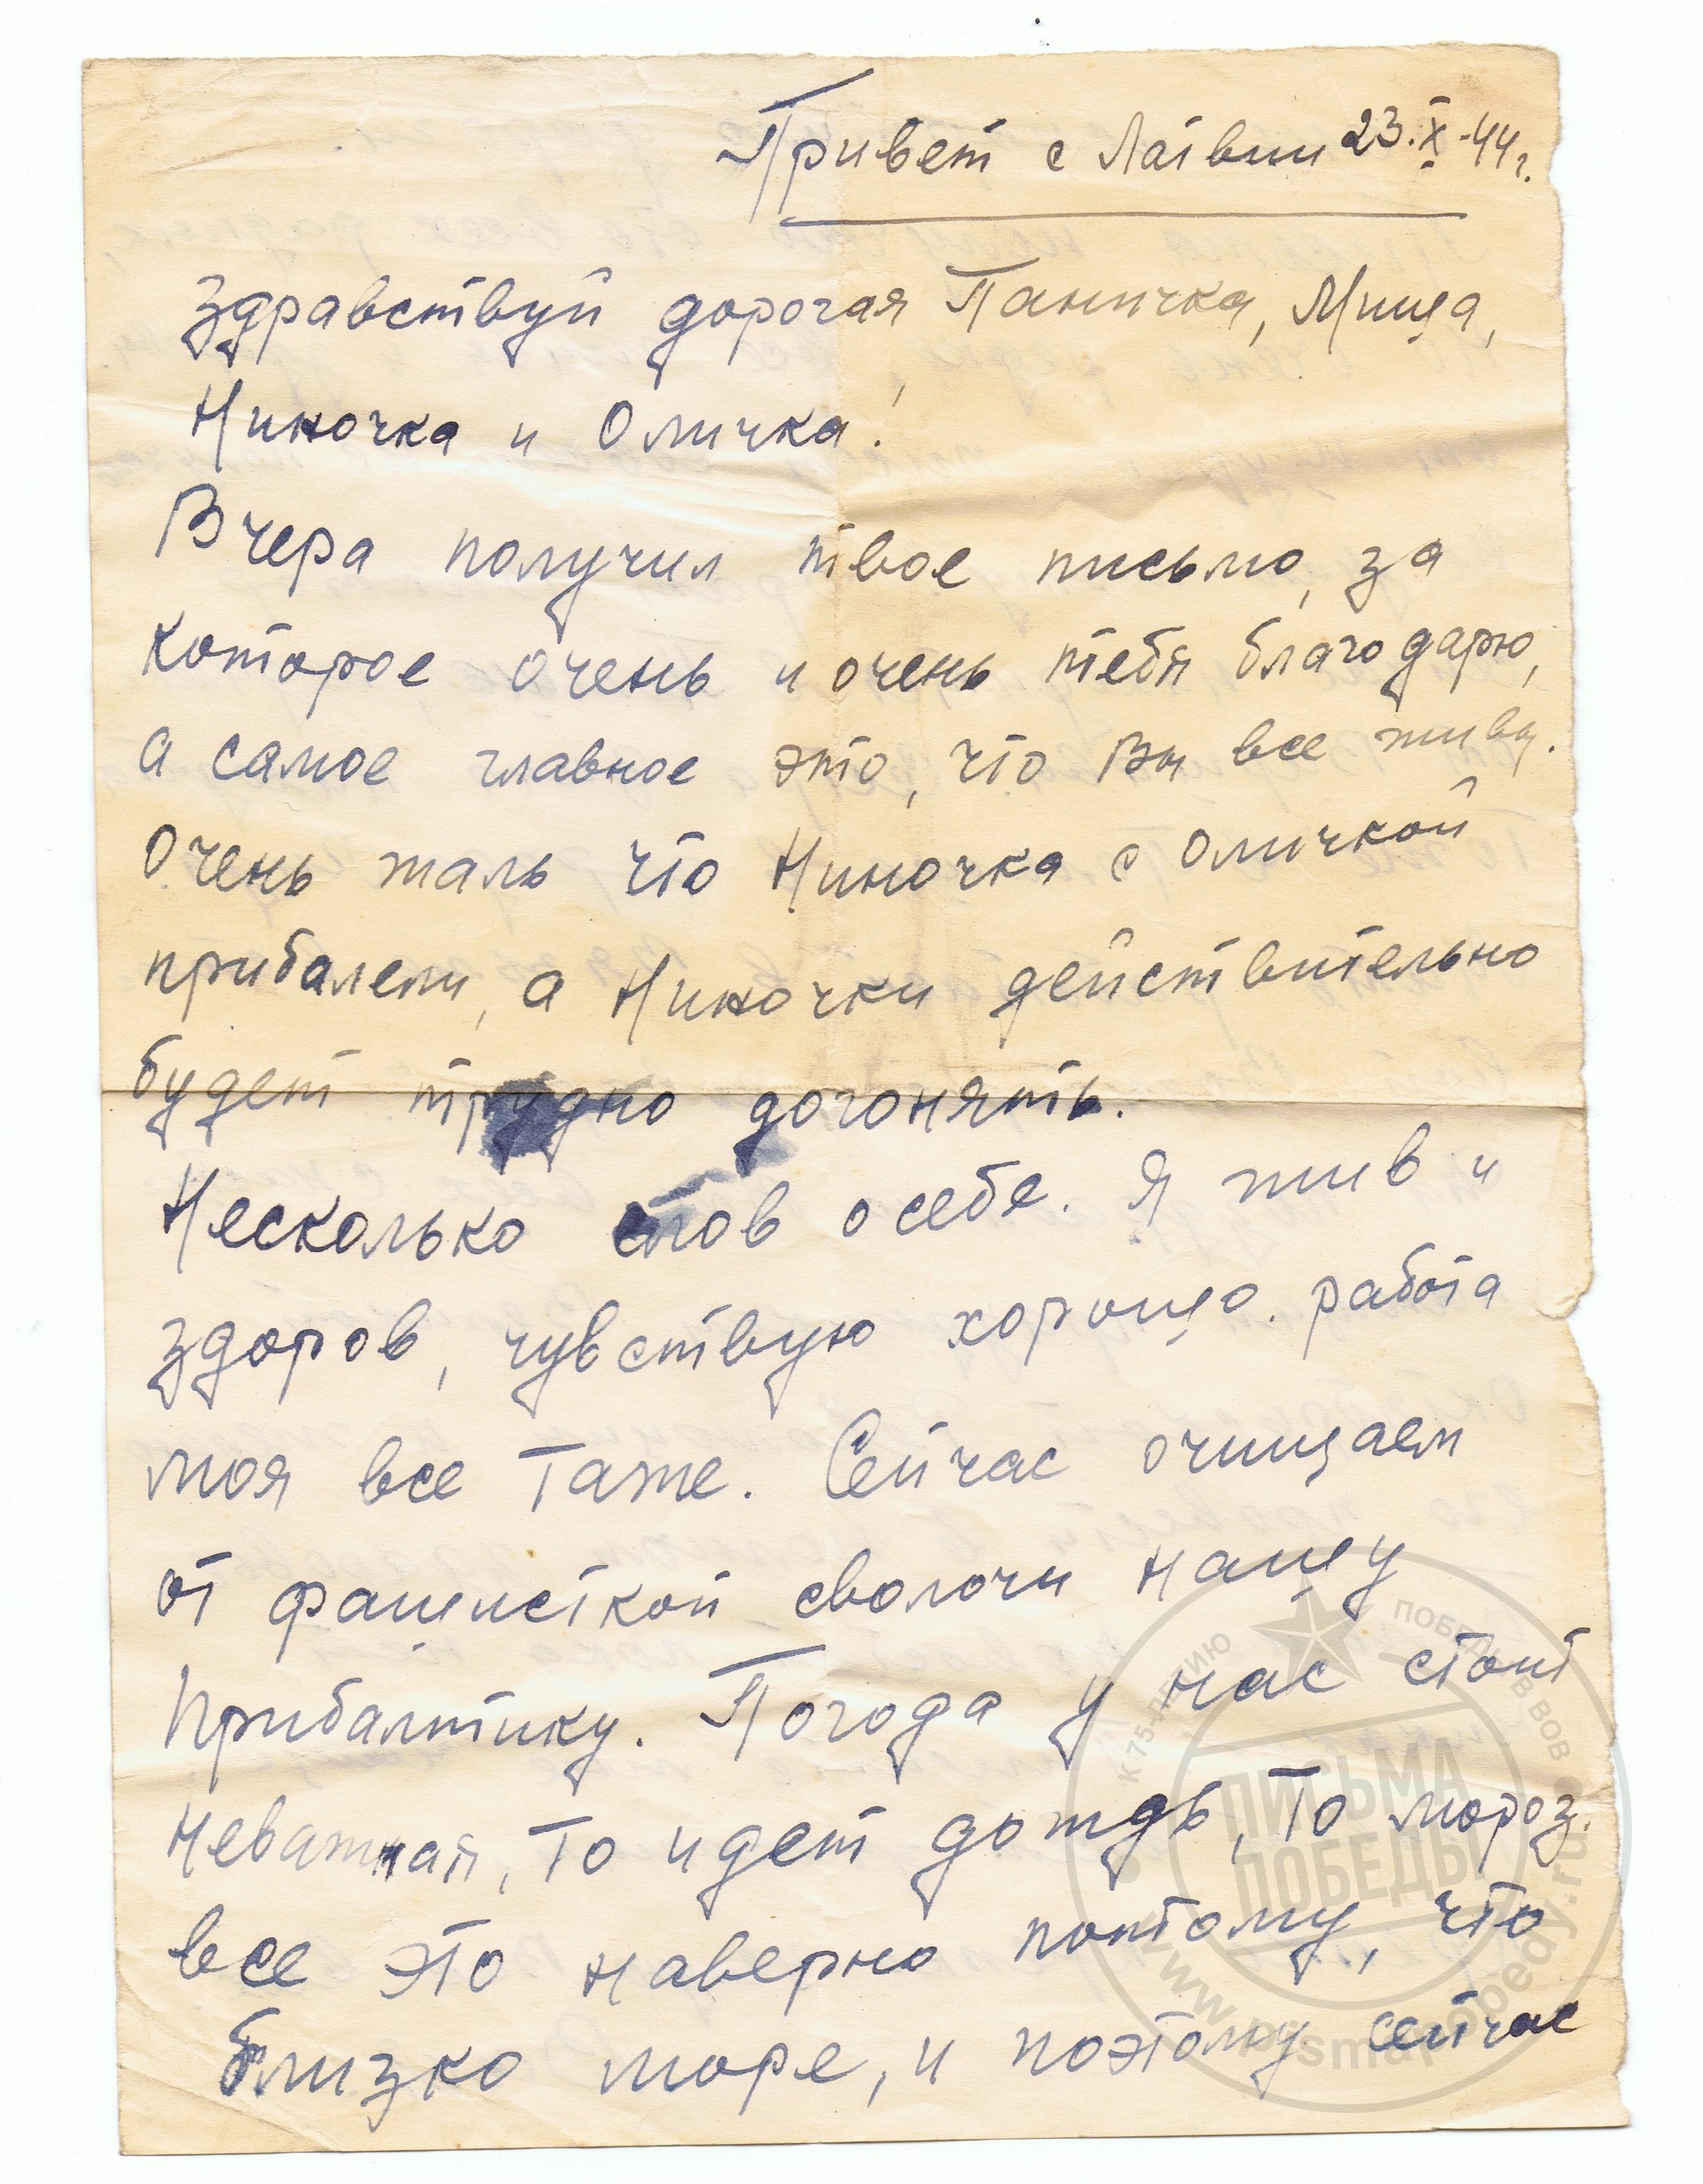 Привет с Латвии 23.X-44г.
Здравствуй дорогая Паничка, Миша,
Ниночка и Оличка!
Вчера получил твое письмо, за
которое очень и очень тебя благодарю,
а самое главное это, что Вы все живы.
Очень жаль что Ниночка с Оличкой
прибалели, а Ниночки действительно
будет трудно догонять.
Несколько слов о себе. Я жив и
здоров, чувствую хорошо. работа
моя все таже. Сейчас очищаем
от фашисткой сволочи нашу
Прибалтику. Погода у нас стоит
неважная, то идет дождь, то мороз.
все это наверно потому, что
близко море, и поэтому сейчас
К 75-ЛЕТИЮ ПОБЕДЫ В ВОВ
ПИСЬМА
ПОБЕДЫ
www.pismapobedy.ru